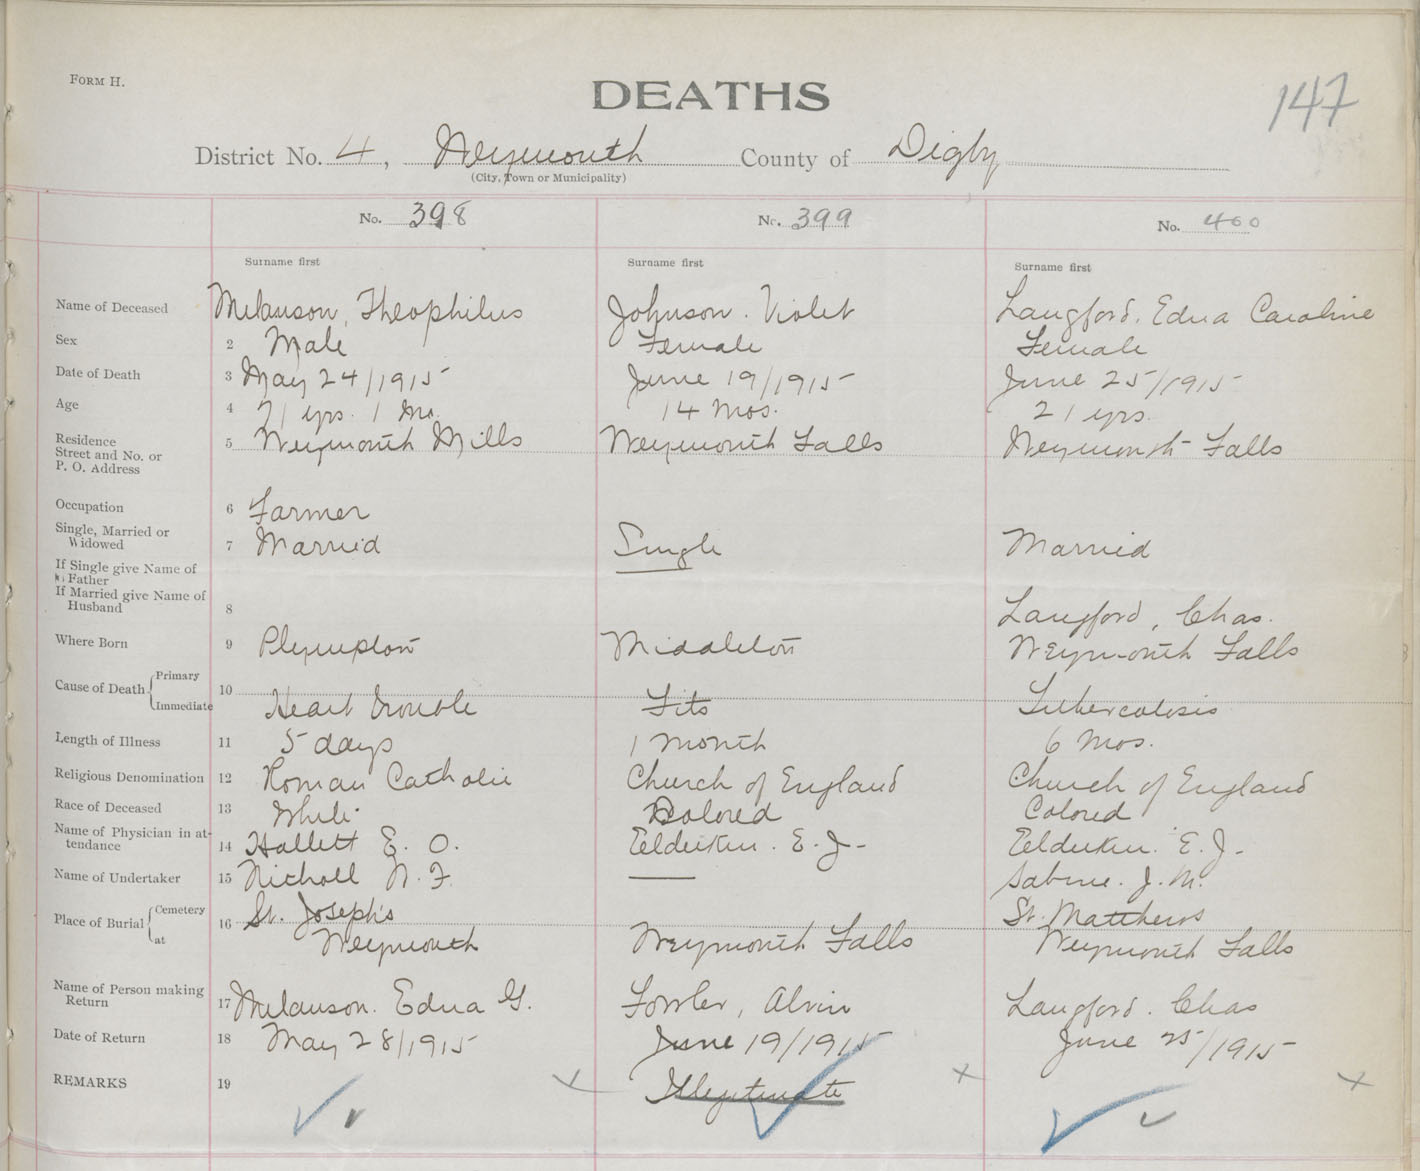 FORM H.
DEATHS
147
District No. 4, Weymouth County of Digby
(City, Town or Municipality)
No. 398 No. 399 No. 400
Surname first Surname first Surname first
Name of Deceased Melanson, Theophilus Johnson. Violet Langford. Edna Caroline
Sex 2 Male Female Female
Date of Death 3 May 24/1915 June 19/1915 June 25/1915
Age 4 71 yrs. 1 Mo. 14 mos. 21 yrs.
Residence Street and No. or P. O. Address 5 Weymouth Mills Weymouth Falls Weymouth Falls
Occupation 6 Farmer
Single, Married or Widowed 7 Married Single Married
If Single give Name of Father
If Married give Name of Husband 8 Langford, Chas.
Where Born 9 Plympton Middleton Weymouth Falls
Cause of Death Primary 10
Immediate Heart trouble Fits Tubercolosis
Length of Illness 11 5 days 1 month 6 mos.
Religious Denomination 12 Roman Catholic Church of England Church of England
Race of Deceased 13 White Colored Colored
Name of Physician in attendance 14 Hallett E. O. Eelderkin. E. J. Eelderkin. E. J.
Name of Undertaker 15 Nicholl N. F. — Sabine. J. M.
Place of Burial Cemetery 16 St. Joseph's St. Matthews
at Weymouth Weymouth Falls Weymouth Falls
Name of Person making Return 17 Melanson. Edna G. Fowler, Alvin Langford. Chas
Date of Return 18 May 28/1915 June 19/1915 June 25/1915
REMARKS 19 Illegitimate